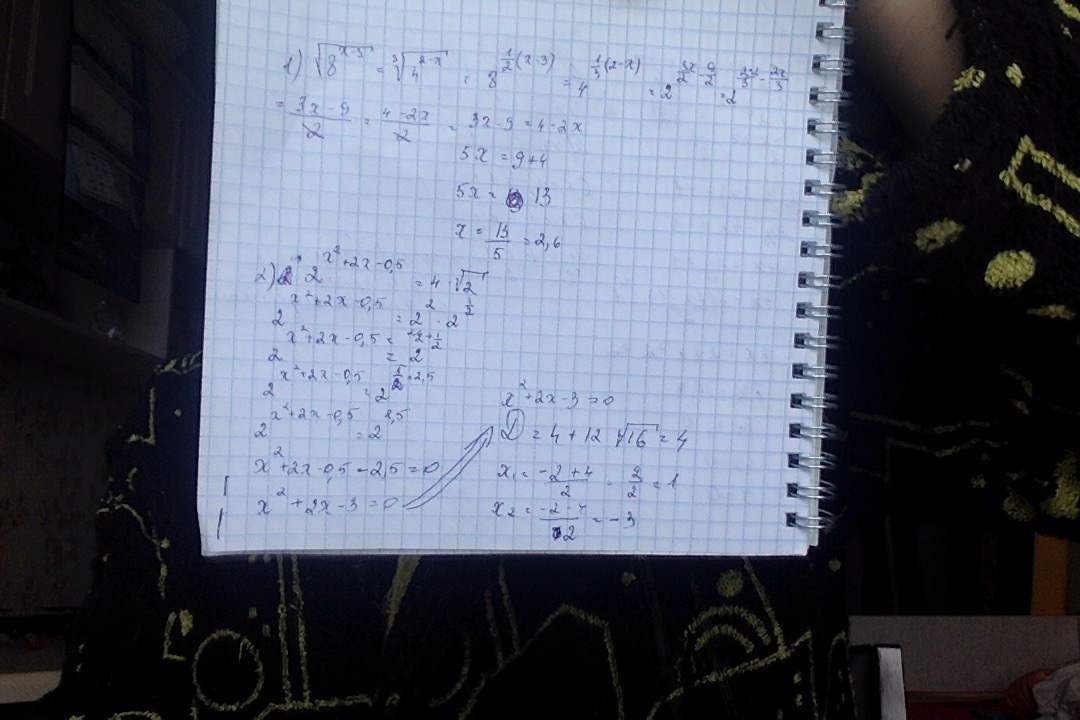 1) √8^(x-3) = ³√4^(2-x) = 8^(1/2(x-3)) = 4^(1/3(2-x)) = 2^(3x/2 - 9/2) = 2
= (3x-9)/2 = (4-2x)/2 = 3x-9=4-2x
5x = 9+4
5x = 13
x = 13/5 = 2,6
2) 2^(x²+2x-0,5) = 4 √2
2^(x²+2x-0,5) = 2² · 2^(1/2)
2^(x²+2x-0,5) = 2^(2+1/2)
2^(x²+2x-0,5) = 2
2^(x²+2x-0,5) = 2^(2,5)
x²+2x-0,5-2,5=0
x²+2x-3=0
x²+2x-3=0
D = 4+12 √16 = 4
x₁ = (-2+4)/2 = 2/2 = 1
x₂ = (-2-4)/2 = -3